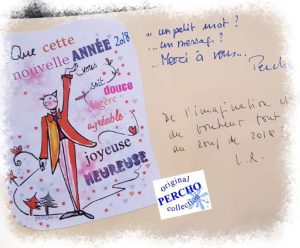 Que cette
nouvelle ANNÉE 2018
vous
soit
douce
légère
agréable
joyeuse
HEUREUSE
PERCHO
... un petit mot ?
... un message ?
... Merci à vous...
Percho
De l'imagination et
du bonheur tout
au long de 2018 !
L R.
original
PERCHO
collection